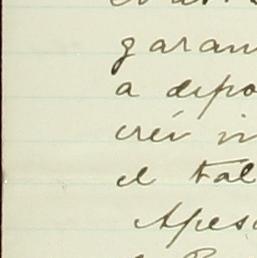 garan
a depo
creí in
el tal
Apesa